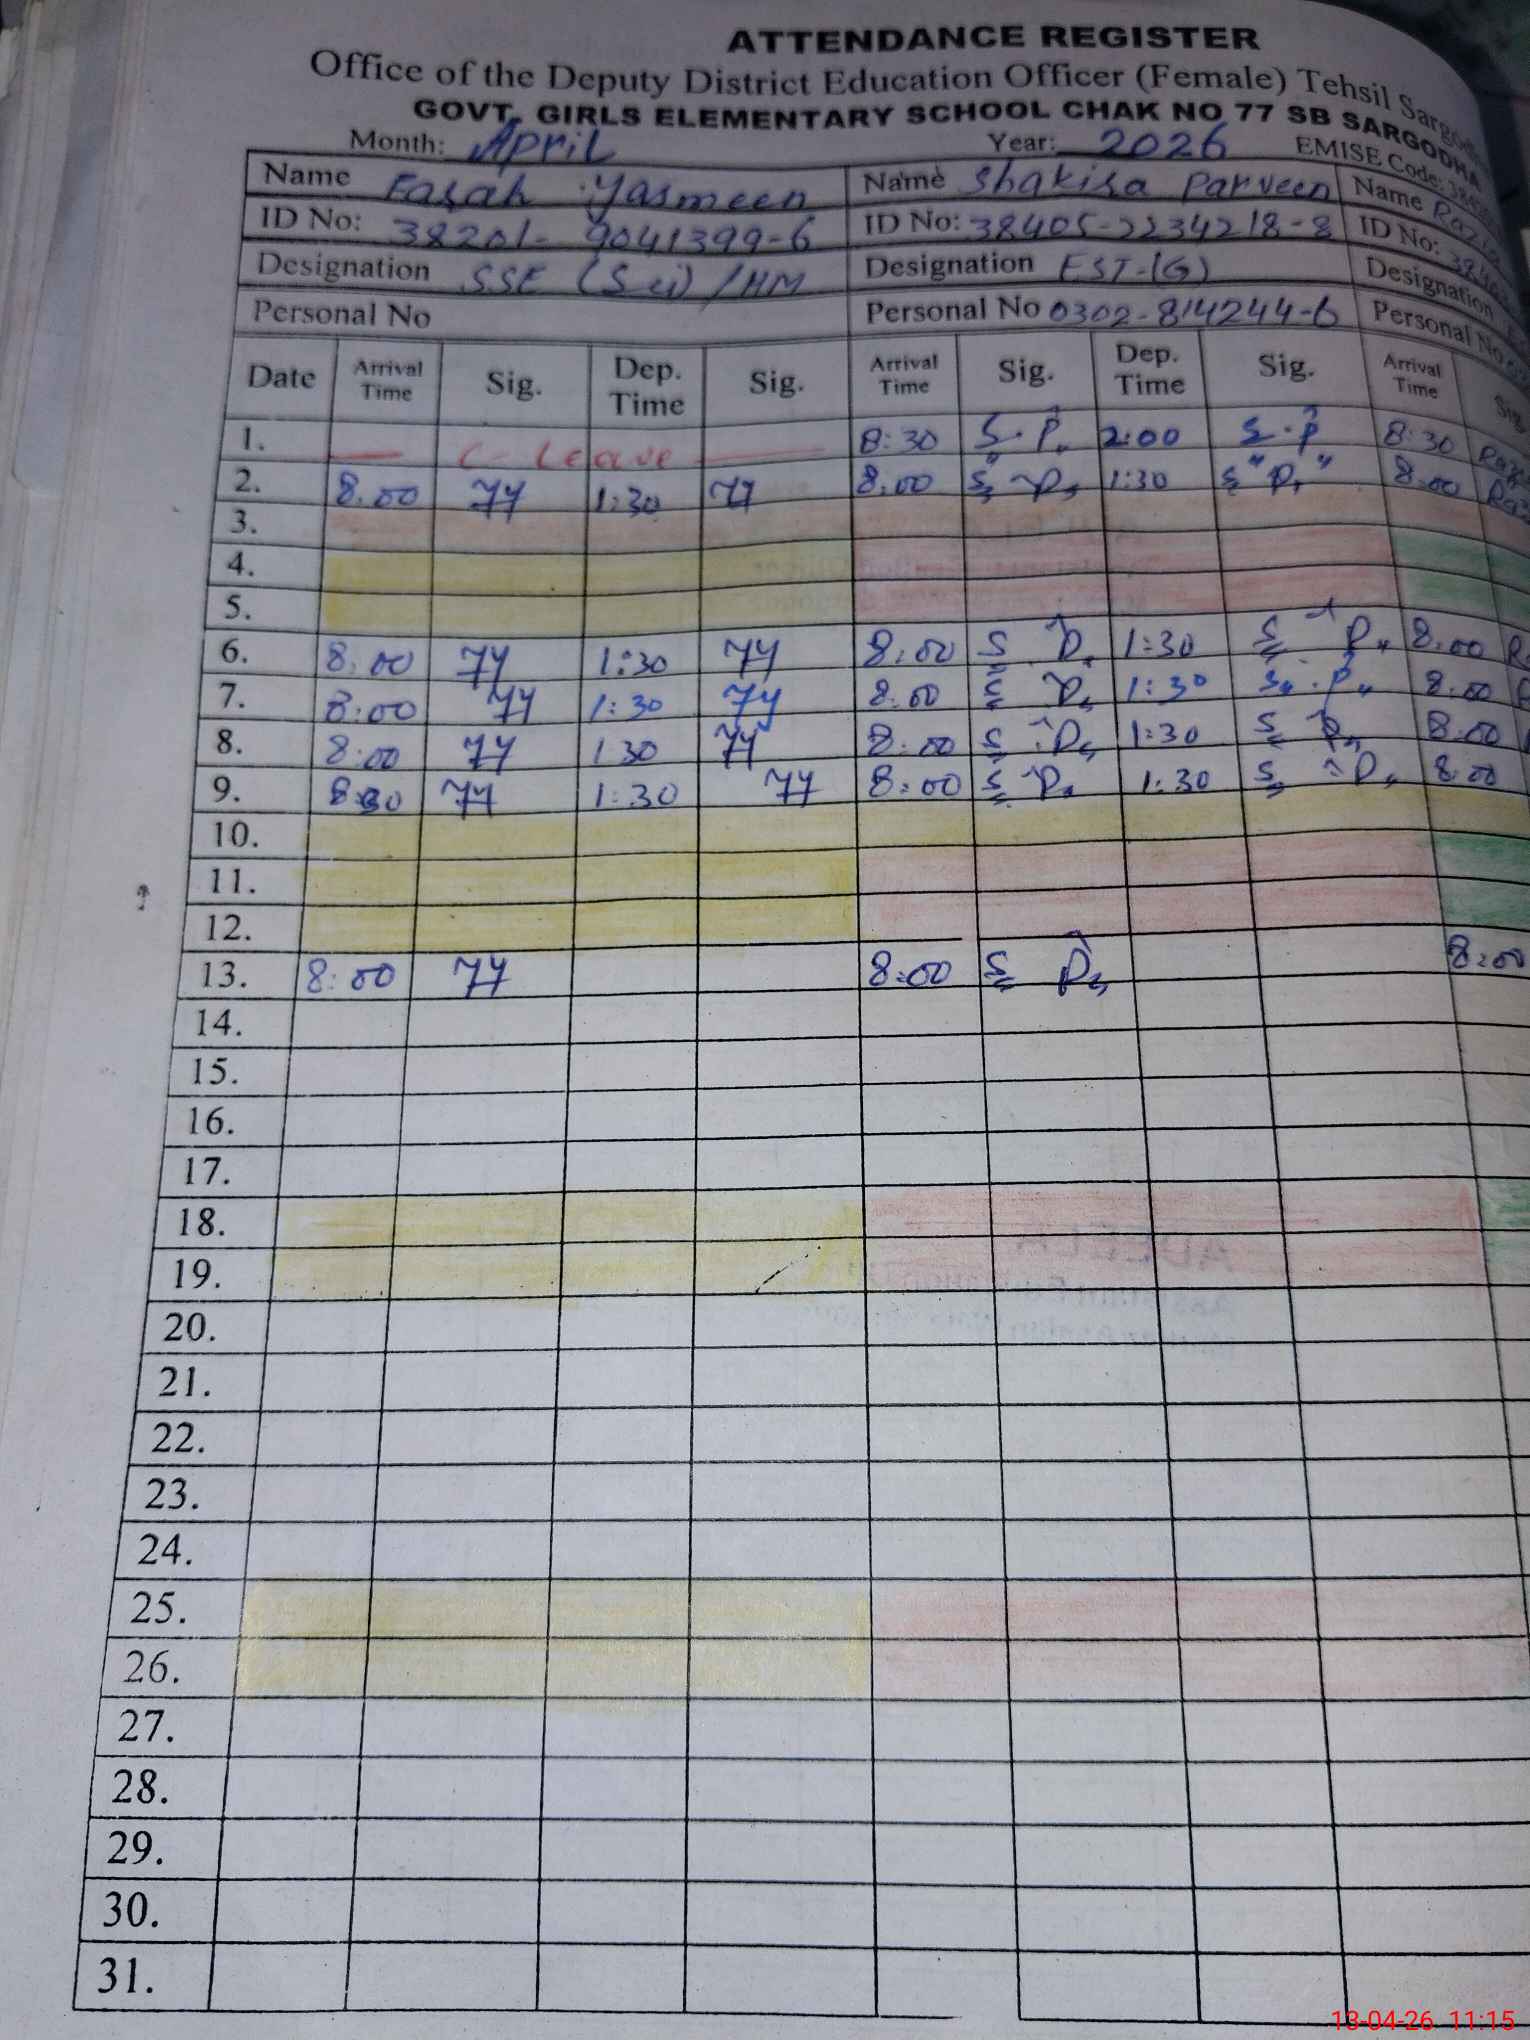 ATTENDANCE REGISTER
Office of the Deputy District Education Officer (Female) Tehsil
GOVT. GIRLS ELEMENTARY SCHOOL CHAK NO 77 SB SARGODHA
Month: April Year: 2026 EMISE Code:
Name Yasmeen Name Shakira Parveen Name
ID No: 38201-9041399-6 ID No: 38405-2234218-8 ID No:
Designation SSE (Sci) /HM Designation EST-(G) Designation
Personal No Personal No 0302-814244-6 Personal No
Date Arrival Time Sig. Dep. Time Sig. Arrival Time Sig. Dep. Time Sig. Arrival Time Sig.
1. C-Leave 8:30 S.P. 2:00 S.P 8:30
2. 8.00 1:30 8:00 S P 1:30 S P 8:00
3.
4.
5.
6. 8:00 1:30 8:00 S P 1:30 S P 8:00
7. 8:00 1:30 8:00 S P 1:30 S P 8:00
8. 8:00 1:30 8:00 S P 1:30 S P 8:00
9. 1:30 8:00 S P 1:30 S P 8:00
10.
11.
12.
13. 8:00 8:00 S P 8:00
14.
15.
16.
17.
18.
19.
20.
21.
22.
23.
24.
25.
26.
27.
28.
29.
30.
31.
13-04-26 11:15